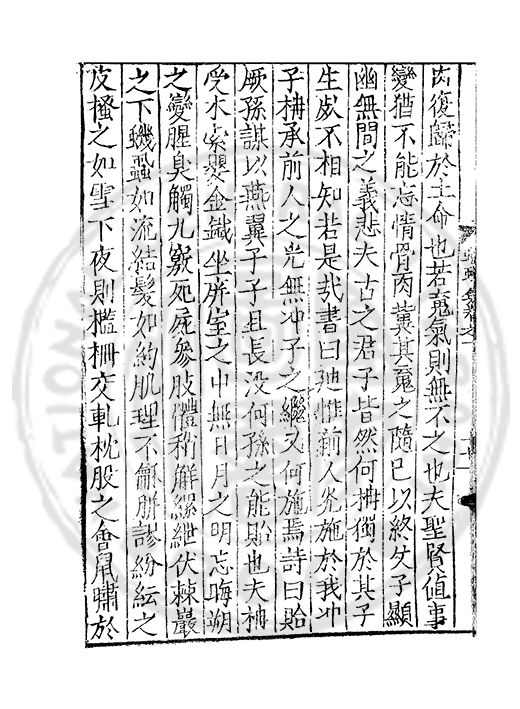 肉復歸於土命也若魂氣則無不之也夫聖賢值事
變猶不能忘情骨肉冀其䰟之隨已以終父子顯
幽無間之義悲夫古之君子皆然何柟獨於其子
生死不相知若是哉書曰迪惟前人光施於我冲
子柟承前人之光無冲子之繼又何施焉詩曰貽
厥孫謀以燕翼子子且長没何孫之能貽也夫柟
受木索嬰金鐵坐屏室之中無日月之明忘晦朔
之變腥臭觸九竅死屍參肢體稱解縲紲伏棘嚴
之下蟣蝨如流結髮如約肌理不龢胼胗紛紜之
皮搔之如雪下夜則檻柵交軋枕股之會鼠嘯於